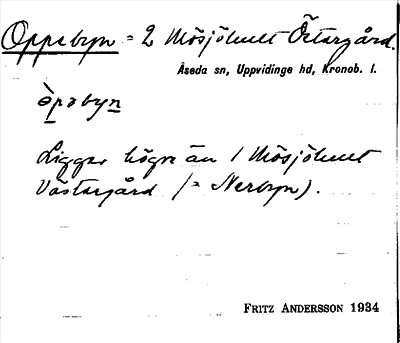 Oppebyn = 2 Mösjöhult Östargård.
Åseda sn, Uppvidinge hd, Kronob. l.
òpəbyn
Ligger högre än 1 Mösjöhult
Västargård (= Nerbyn).
FRITZ ANDERSSON 1934